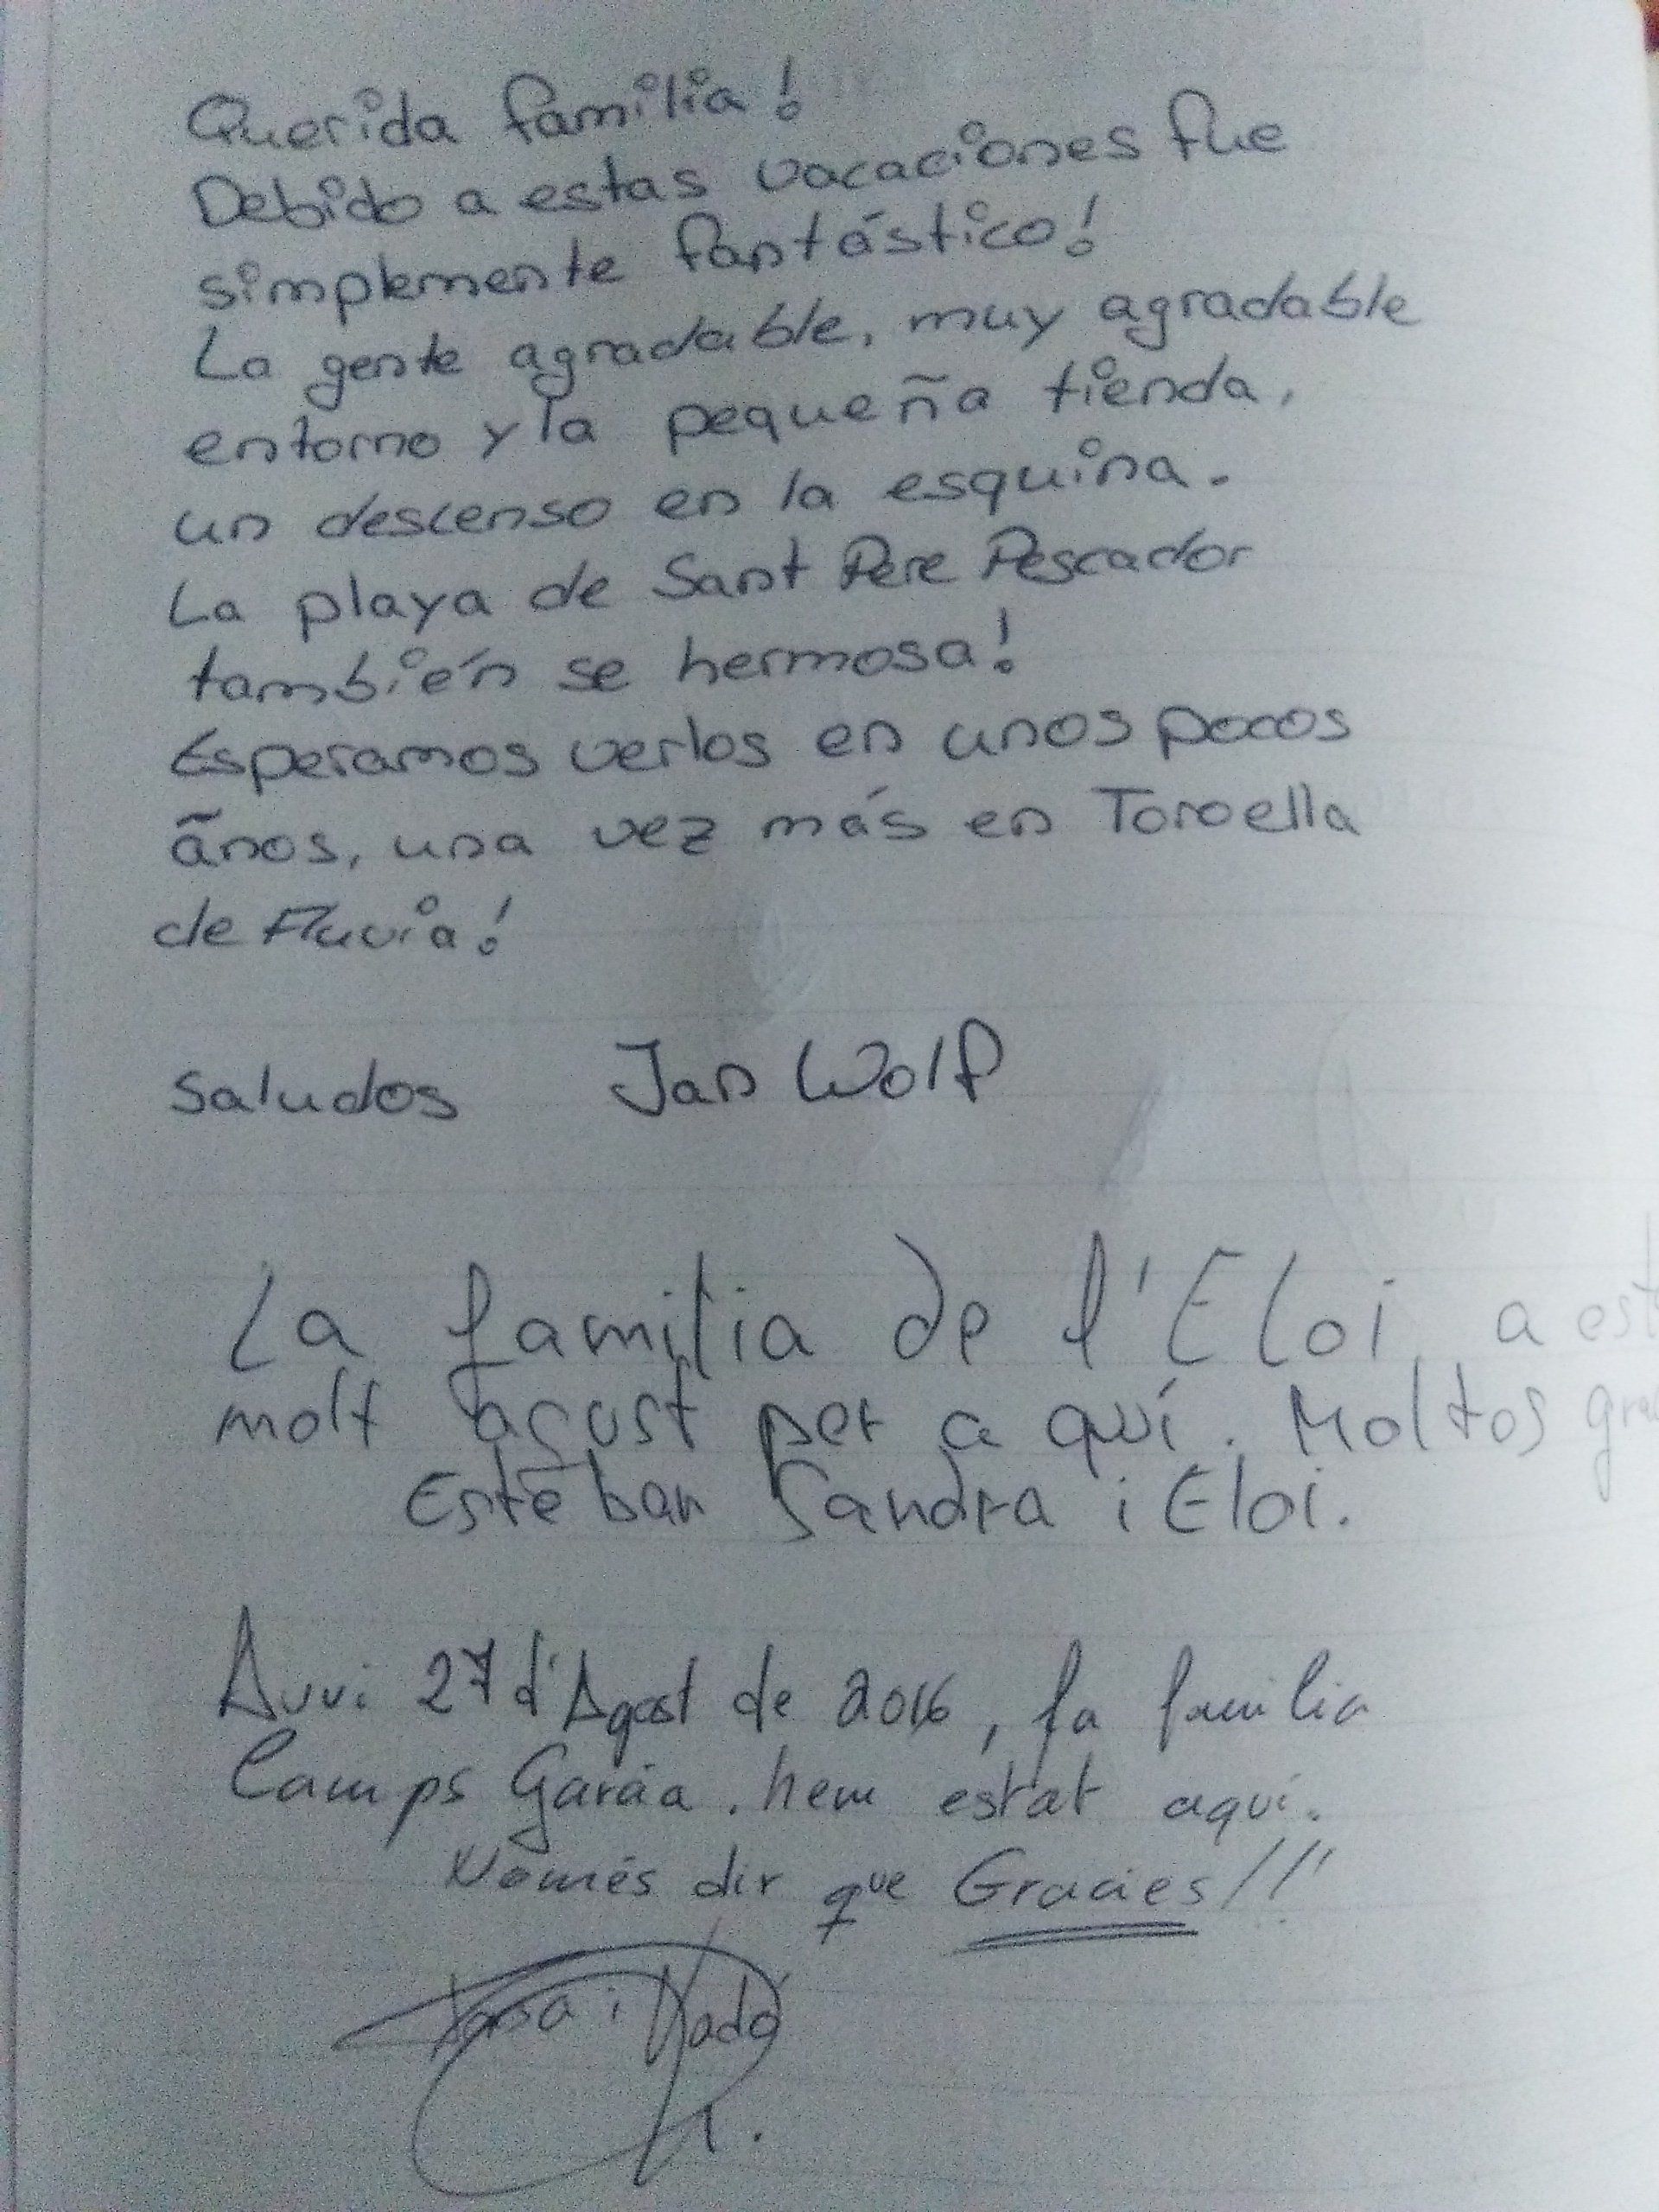 Querida familia!
Debido a estas vacaciones fue
simplemente fantástico!
La gente agradable, muy agradable
entorno y la pequeña tienda,
un descenso en la esquina.
La playa de Sant Pere Pescador
también se hermosa!
Esperamos verlos en unos pocos
ãnos, una vez más en Toroella
de Fluvia!
Saludos Jan Wolf
La familia de l'Eloi a
molt agust per a quí. Moltos
Esteban Sandra i Eloi.
Avui 27 d'Agost de 2016, la familia
Camps García. hem estat aquí.
Només dir que Gracies!!!